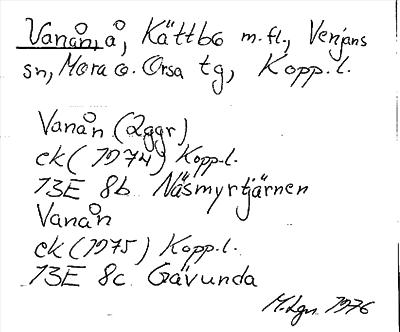 Vanån, å, Kättbo m.fl., Venjans
sn, Mora o. Orsa tg, Kopp.l.
Vanån (2ggr)
ek (1974) Kopp.l.
13E 8b Näsmyrtjärnen
Vanån
ek (1975) Kopp.l.
13E 8c Gävunda
M.Lgn. 1976